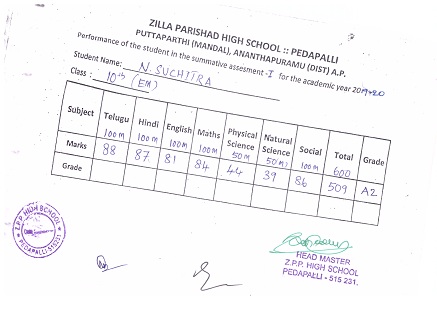 ZILLA PARISHAD HIGH SCHOOL :: PEDAPALLI
PUTTAPARTHI (MANDAL), ANANTHAPURAMU (DIST) A.P.
Performance of the student in the summative assesment -I for the academic year 2019-20
Student Name: N. SUCHITRA
Class : 10th (EM)
Subject Telugu Hindi English Maths Physical Science Natural Science Social Total Grade
100m 100m 100m 100m 50m 50m 100m 600
Marks 88 87 81 84 44 39 86 509 A2
Grade
Z.P.P. HIGH SCHOOL
PEDAPALLI-515231
HEAD MASTER
Z.P.P. HIGH SCHOOL
PEDAPALLI - 515 231.